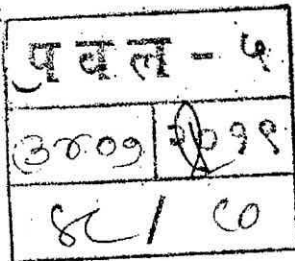 पवल - ५
३४०१ २०१९
४८ / ८०